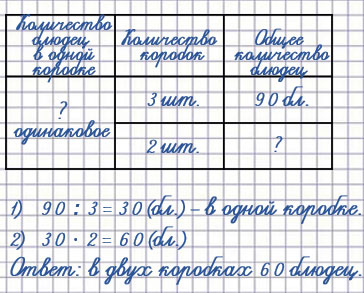 Количество блюдец в одной коробке
Количество коробок
Общее количество блюдец
? одинаковое
3 шт.
90 бл.
2 шт.
?
1) 90 : 3 = 30 (бл.) – в одной коробке.
2) 30 · 2 = 60 (бл.)
Ответ: в двух коробках 60 блюдец.